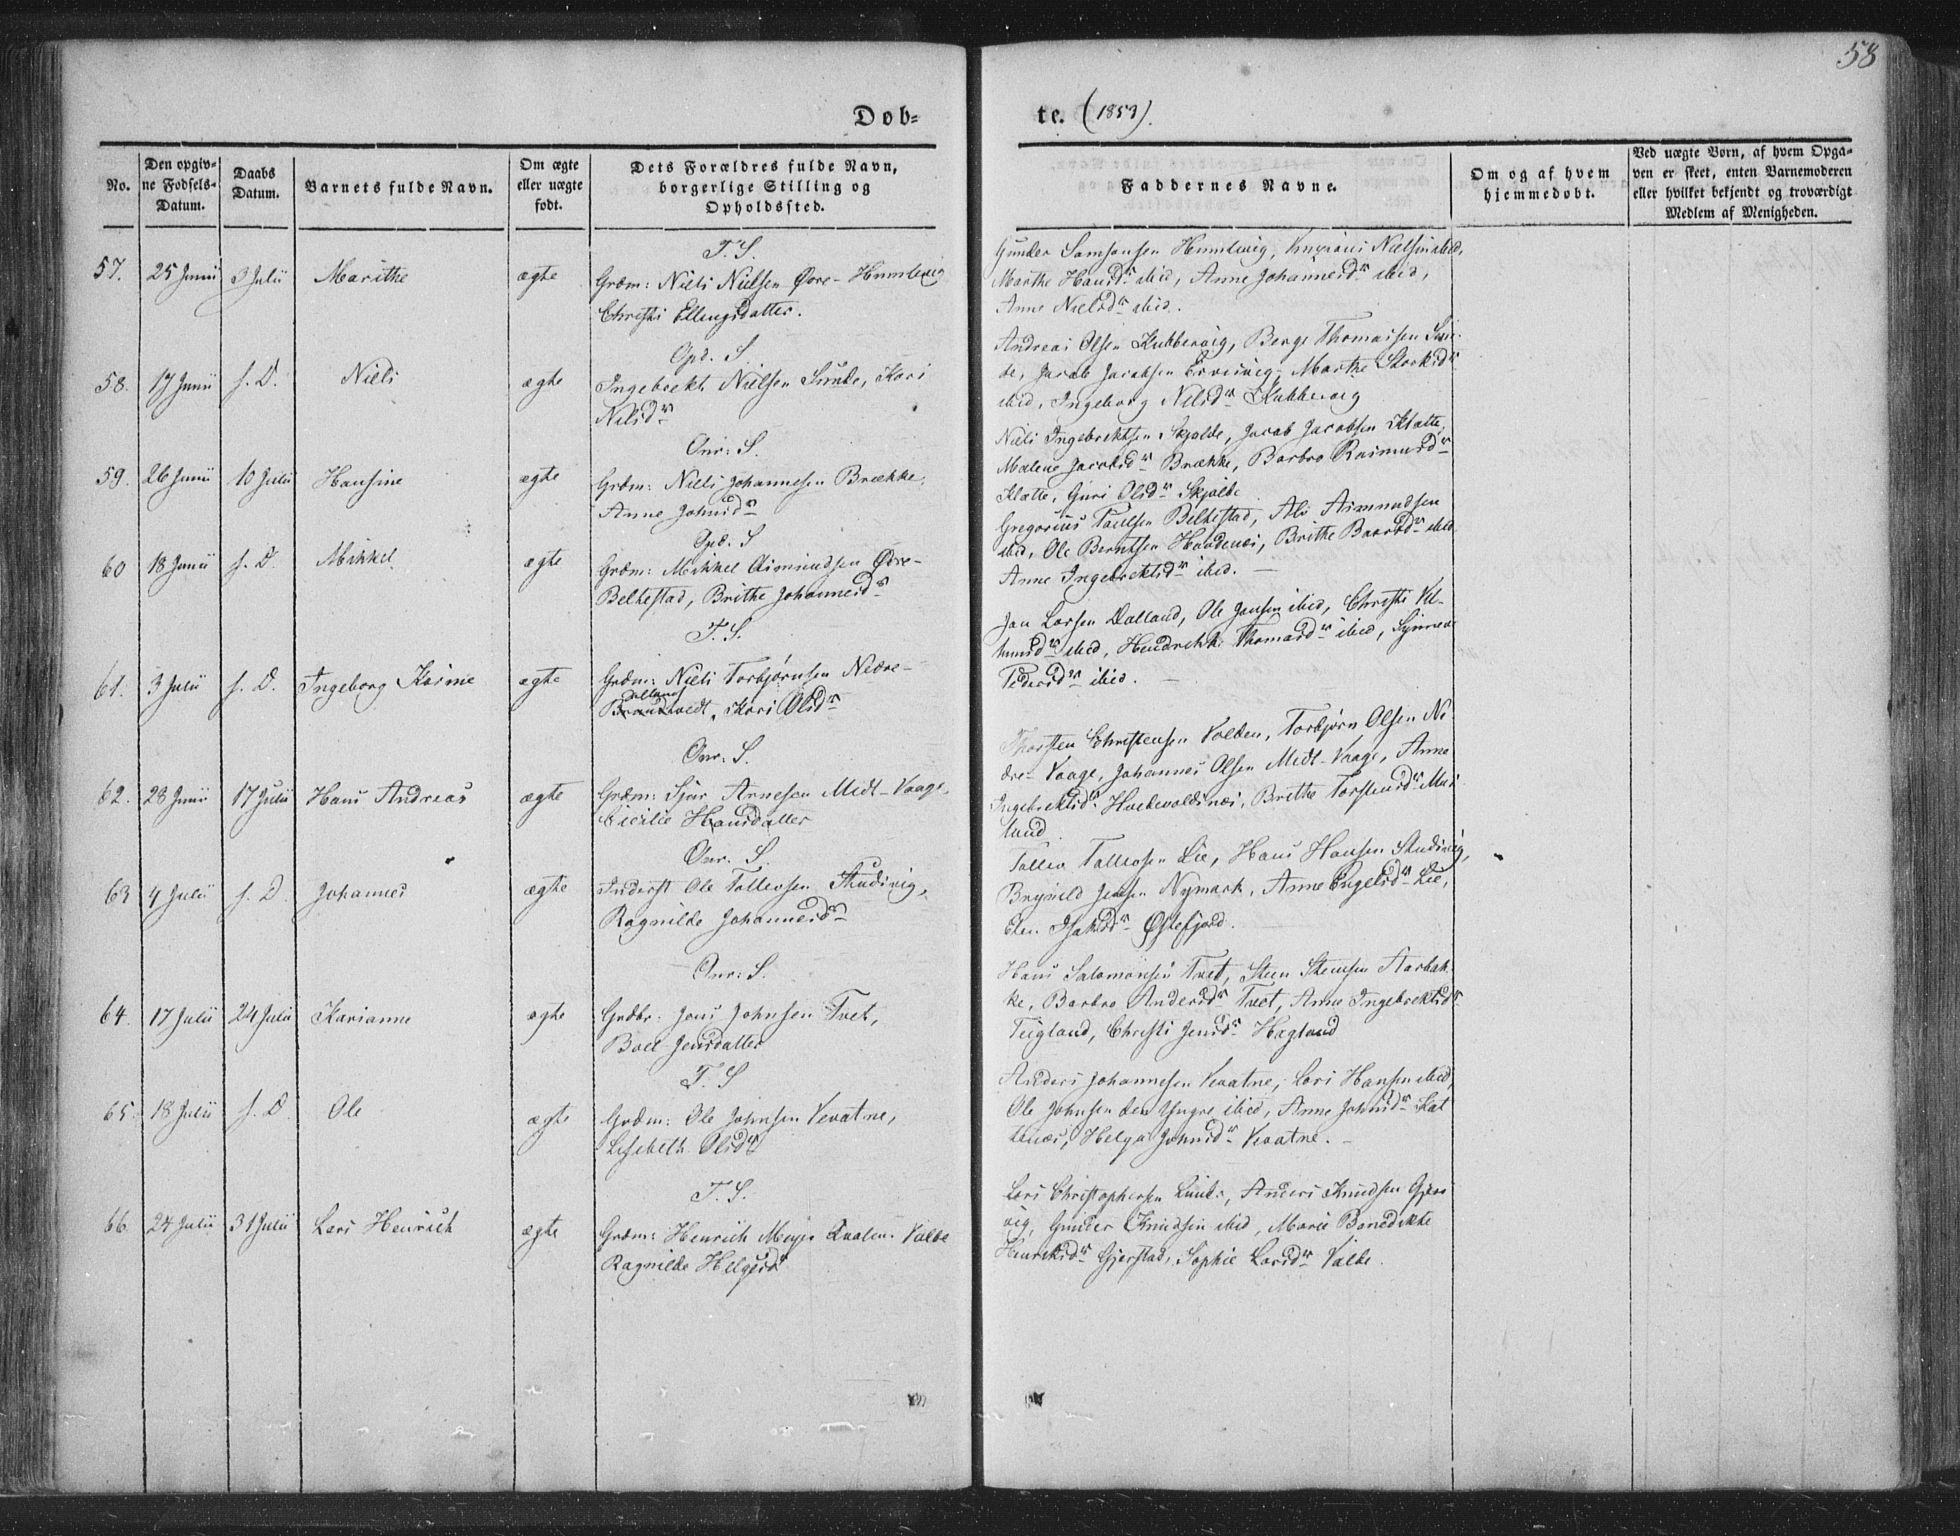 58
Dob=
te. (1853).
No.
Den opgiv=
ne Fodsels=
Datum.
Daabs
Datum.
Barnets fulde Navn.
Om ægte
eller uægte
fodt.
Dets Forældres fulde Navn,
borgerlige Stilling og
Opholdssted.
Faddernes Navne.
Om og af hvem
hjemmedobt.
Ved uægte Born, af hvem Opga=
ven er skeet, enten Barnemoderen
eller hvilket bekjendt og troværdigt
Medlem af Menigheden.
T. S.
57. 25 Junii 3 Julii Marithe ægte Grdm: Niels Nielsen Øvre- Humlevig
Christi Ellingsdatter.
Gunder Samsonsen Humlevig, Nielsen ibid,
Marthe Hansdr ibid, Anne Johannesdr ibid,
Anne Nielsdr ibid.
Opd. S.
58. 17 Junii f. D. Niels ægte Ingebrekt Nielsen Sunde, Kari
Nilsdr
Andreas Olsen Kubbervig, Berge Thomassen Sun-
de, Jacob Jacobsen Marthe
ibid, Ingeborg Nilsdr Kubbervig
Onr: S.
59. 26 Junii 10 Julii Hansine ægte Grdm: Niels Johannesen Brække,
Anne Johnsdr
Niels Ingebrektsen Skjolde, Jacob Jacobsen Klatte,
Malene Jacobsdr Brække, Barbro Rasmusdr
Klatte, Guri Olsdr Skjolde
Opd. S
60 18 Junii f. D. Mikkel ægte Grdm: Mikkel Asmundsen Øvre-
Belkestad, Brithe Johannesdr
Gregorius Paulsen Belkestad, Als Asmundsen
ibid, Ole Berntsen Brithe ibid
Anne Ingebrektsdr ibid. —
T. S.
61. 3 Julii f. D. Ingeborg Karine ægte Grdm: Niels Torbjørnsen Nedre-
Dalland
Brandtvedt, Kari Olsdr
Jan Larsen Dalland, Ole Jansen ibid, Christi
ibid, Thomasdr ibid,
Pedersdr ibid. —
Onr: S.
62. 28 Junii 17 Julii Hans Andreas ægte Grdm: Sjur Arnesen Midt-Vaage,
Cicilie Hansdatter
Thorsten Christensen Valden, Torbjørn Olsen Ne
dre- Vaage, Johannes Olsen Midt-Vaage, Anne
Ingebrektsdr Brithe Torstensdr
land
Onr. S.
63 4 Julii f. D. Johannes ægte Inderst Ole Tollevsen Studivig,
Ragnilde Johannesdr
Tollev Tollevsen Lie, Hans Hansen Studivig,
Brynild Jensen Nymark, Anne Engelsdr Lie,
Elen Isaksdr Østefjord.
Onr: S.
64. 17 Julii 24 Julii Karianne ægte Grdbr: Jens Johnsen Tvet,
Boel Jensdatter
Hans Salamonsen Tvet, Steen Steensen Aarbak-
ke, Barbro Andersdr Tvet, Anne Ingebrektsdr
Tegland, Christi Jensdr Hagland
T. S
65. 18 Julii f. D. Ole ægte Grdm: Ole Johnsen Vevatne,
Lisebeth Olsdr
Anders Johannesen Vevatne, Lars Hansen ibid,
Ole Johnsen den Yngre ibid, Anne Johnsdr Kat
tenæs, Helga Johnsdr Vevatne. —
T. S.
66. 24 Julii 31 Julii Lars Henrich ægte Grdm: Henrich Meyer Valde
Ragnilde Helgesdr
Lars Christophersen Anders Knudsen Gjers
vig, Gunder Knudsen ibid, Marie Benedikte
Henriksdr Gjerstad, Sophie Larsdr Valde.